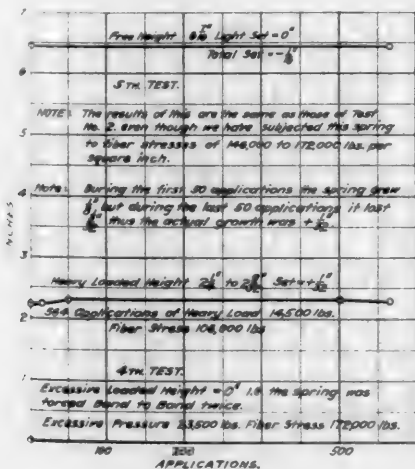 7
Free Height 6 7/16" Light Set = 0"
Total Set = - 1/16"
6
5TH. TEST.
NOTE: The results of this are the same as those of Test
No. 2. even though we have subjected this spring
5
to fiber stresses of 146,000 to 172,000 lbs. per
square inch.
4
Note: During the first 50 applications the spring grew
but during the last 50 applications it lost
thus the actual growth was + 1/32"
INCHES
3
Heavy Loaded Height 2 1/4" to Set = + 1/32"
2
564 Applications of Heavy Load 14,500 lbs.
Fiber Stress 106,000 lbs
4TH. TEST.
1
Excessive Loaded Height = 0" I.E the spring was
forced Band to Band twice.
Excessive Pressure 23,500 lbs. Fiber Stress 172,000 lbs.
0
100 200 500
APPLICATIONS.